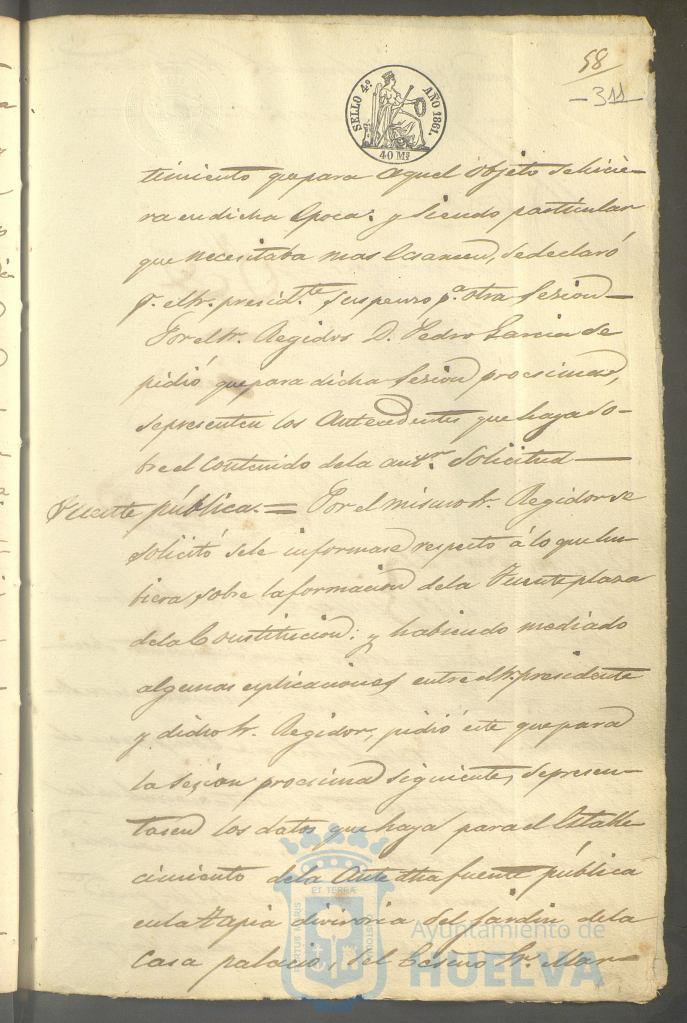 58
-311-
SELLO 4º AÑO 1861.
40 Ms
timiento que para aquel objeto se hicie-
ra en dicha época: y siendo particular
que necesitaba mas ecsamen, se declaró
p. el Sr. presid.te suspenso p.a otra Sesion —
Por el Sr. Regidor D. Pedro Garcia se
pidió que para dicha Sesion procsima,
se presenten los Antecedentes que haya so-
bre el contenido de la ant.r Solicitud —
Fuente pública. = Por el mismo Sr. Regidor se
solicitó se le informase respecto á lo que hu-
biera sobre la formacion de la Fuente plaza
de la Constitucion: y habiendo mediado
algunas esplicaciones entre el Sr. presidente
y dicho Sr. Regidor, pidió este que para
la Sesion procsima siguiente, se presen-
tasen los datos que haya para el Estable-
cimiento de la Ante dha fuente pública
en la tapia divisoria del Jardin de la
Casa palacio, del Ecsmo Sr. Mar-
Ayuntamiento de
HUELVA